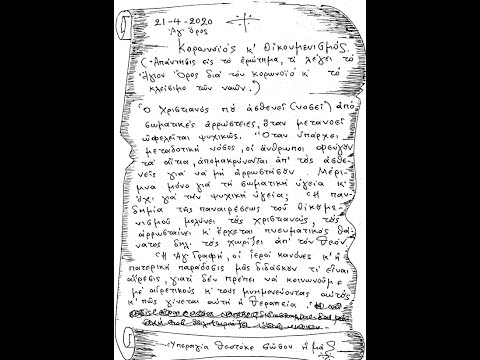 21-4-2020
Ἅγ. Ὄρος
Κορωνοϊός κ' Οἰκουμενισμός
(Ἀπάντησις εἰς τό ἐρώτημα, τί λέγει τό
Ἅγιον Ὄρος διά τόν κορωνοϊό κ' τό
κλείσιμο τῶν ναῶν.)
Ὁ Χριστιανός πού ἀσθενεῖ (νοσεῖ) ἀπό
σωματικές ἀρρώστειες, ὅταν μετανοεῖ
ὠφελεῖται ψυχικῶς. Ὅταν ὑπάρχει
μεταδοτική νόσος, οἱ ἄνθρωποι φεύγουν
τά αἴτια, ἀπομακρύνονται ἀπ' τούς ἀσθε-
νεῖς γιά νά μή ἀρρωστήσουν. Μέρι-
μνα μόνο γιά τή σωματική ὑγεία κ'
ὄχι γιά τήν ψυχική ὑγεία; Ἡ παν-
δημία τῆς παναιρέσεως τοῦ οἰκουμε-
νισμοῦ μολύνει τούς χριστιανούς, τούς
ἀρρωσταίνει κ' ἔρχεται πνευματικός θά-
νατος δηλ. τούς χωρίζει ἀπ' τόν Θεόν.
Ἡ Ἁγ. Γραφή, οἱ ἱεροί κανόνες κ' ἡ
πατερική παράδοσις μᾶς διδάσκουν τί εἶναι
αἵρεσις, γιατί δέν πρέπει νά κοινωνοῦμε
μέ αἱρετικούς κ' τούς μνημονεύοντας αὐτούς
κ' πῶς γίνεται αὐτή ἡ θεραπεία.
Ὑπεραγία Θεοτόκε σῶσον ἡμᾶς